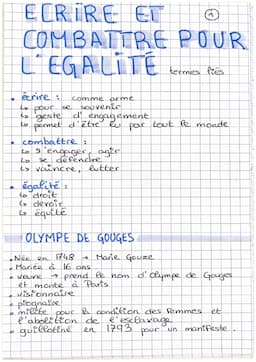 ECRIRE ET
①
COMBATTRE POUR
L'EGALITÉ termes liés
• écrire : comme arme
↳ pour se souvenir
↳ geste d'engagement
↳ permet d'être lu par tout le monde
• combattre :
↳ s'engager, agir
↳ se défendre
↳ vaincre, lutter
• égalité :
↳ droit
↳ devoir
↳ équité
OLYMPE DE GOUGES
• Née en 1748 → Marie Gouze
• Mariée à 16 ans
• veuve → prend le nom d'Olympe de Gouges
et monte à Paris
• visionnaire
• pionnière
• milite pour la condition des femmes et
l'abolition de l'esclavage
• guillotinée en 1793 pour un manifeste.